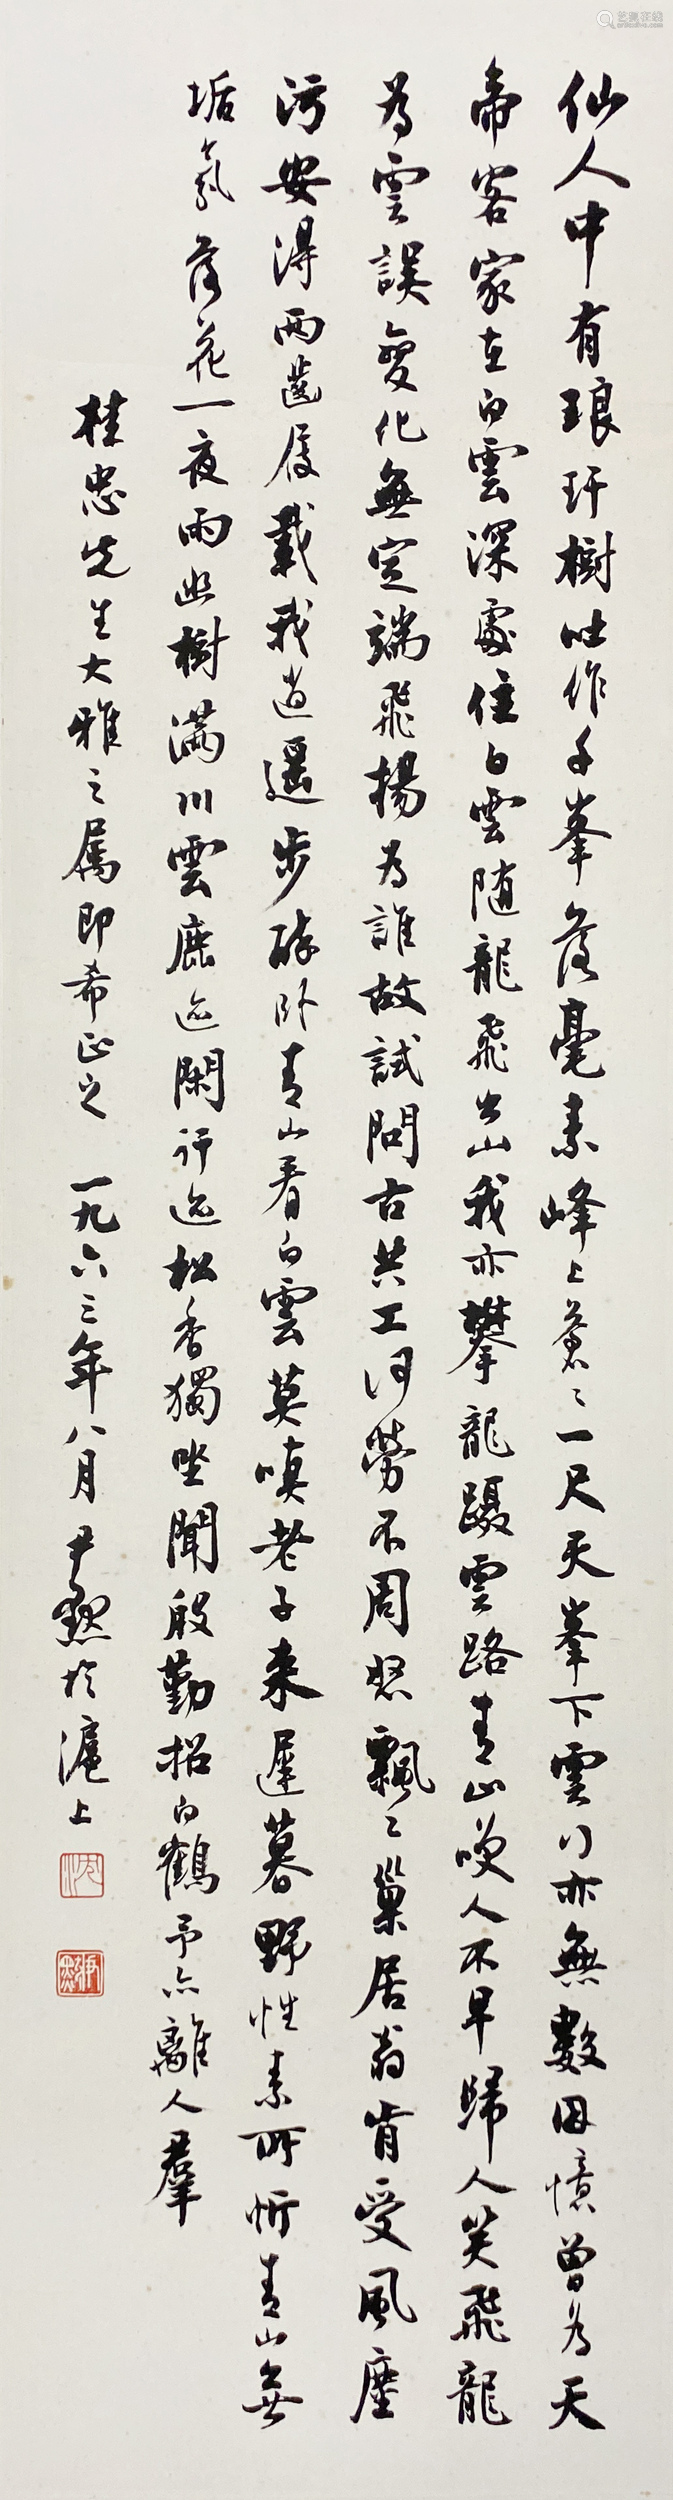 仙人中有琅玕樹吐作千峯落毫素峰上蒼〻一尺天峯下雲行亦無數因憶曾為天
帝客家在白雲深處住白雲随龍飛出山我亦攀龍躡雲路青山嘆人不早歸人笑飛龍
為雲誤變化無定端飛揚為誰故試問古共工何勞不周怒飄〻巢居翁肯受風塵
污安得兩齒屐載我逍遥步醉卧青山看白雲莫嗔老子来遲暮野性素所忻青山無
垢氛落花一夜雨幽樹滿川雲鹿迹閑行迹松香獨坐聞殷勤招白鶴予亦離人羣
桂忠先生大雅之屬即希正之 一九六三年八月 尹默於滬上
沈
尹默
艺典在线